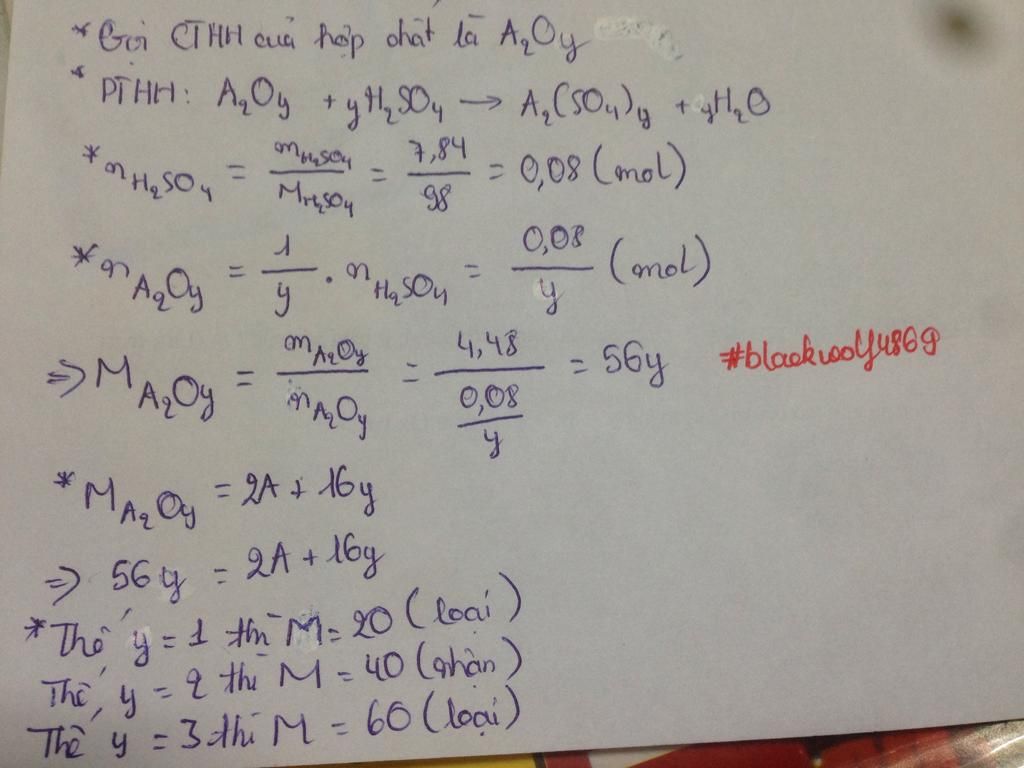 * Gọi CTHH của hợp chất là A₂Oy
* PTHH: A₂Oy + yH₂SO₄ → A₂(SO₄)y + yH₂O
* nH₂SO₄ = mH₂SO₄/MH₂SO₄ = 7,84/98 = 0,08 (mol)
* nA₂Oy = 1/y . nH₂SO₄ = 0,08/y (mol)
⇒ MA₂Oy = mA₂Oy/nA₂Oy = 4,48/(0,08/y) = 56y #blackwolf4869
* MA₂Oy = 2A + 16y
⇒ 56y = 2A + 16y
* Thế y = 1 thì M = 20 (loại)
Thế y = 2 thì M = 40 (nhận)
Thế y = 3 thì M = 60 (loại)